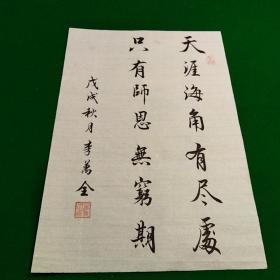 天涯海角有尽處
只有師恩無窮期
戊戌秋月李萬全